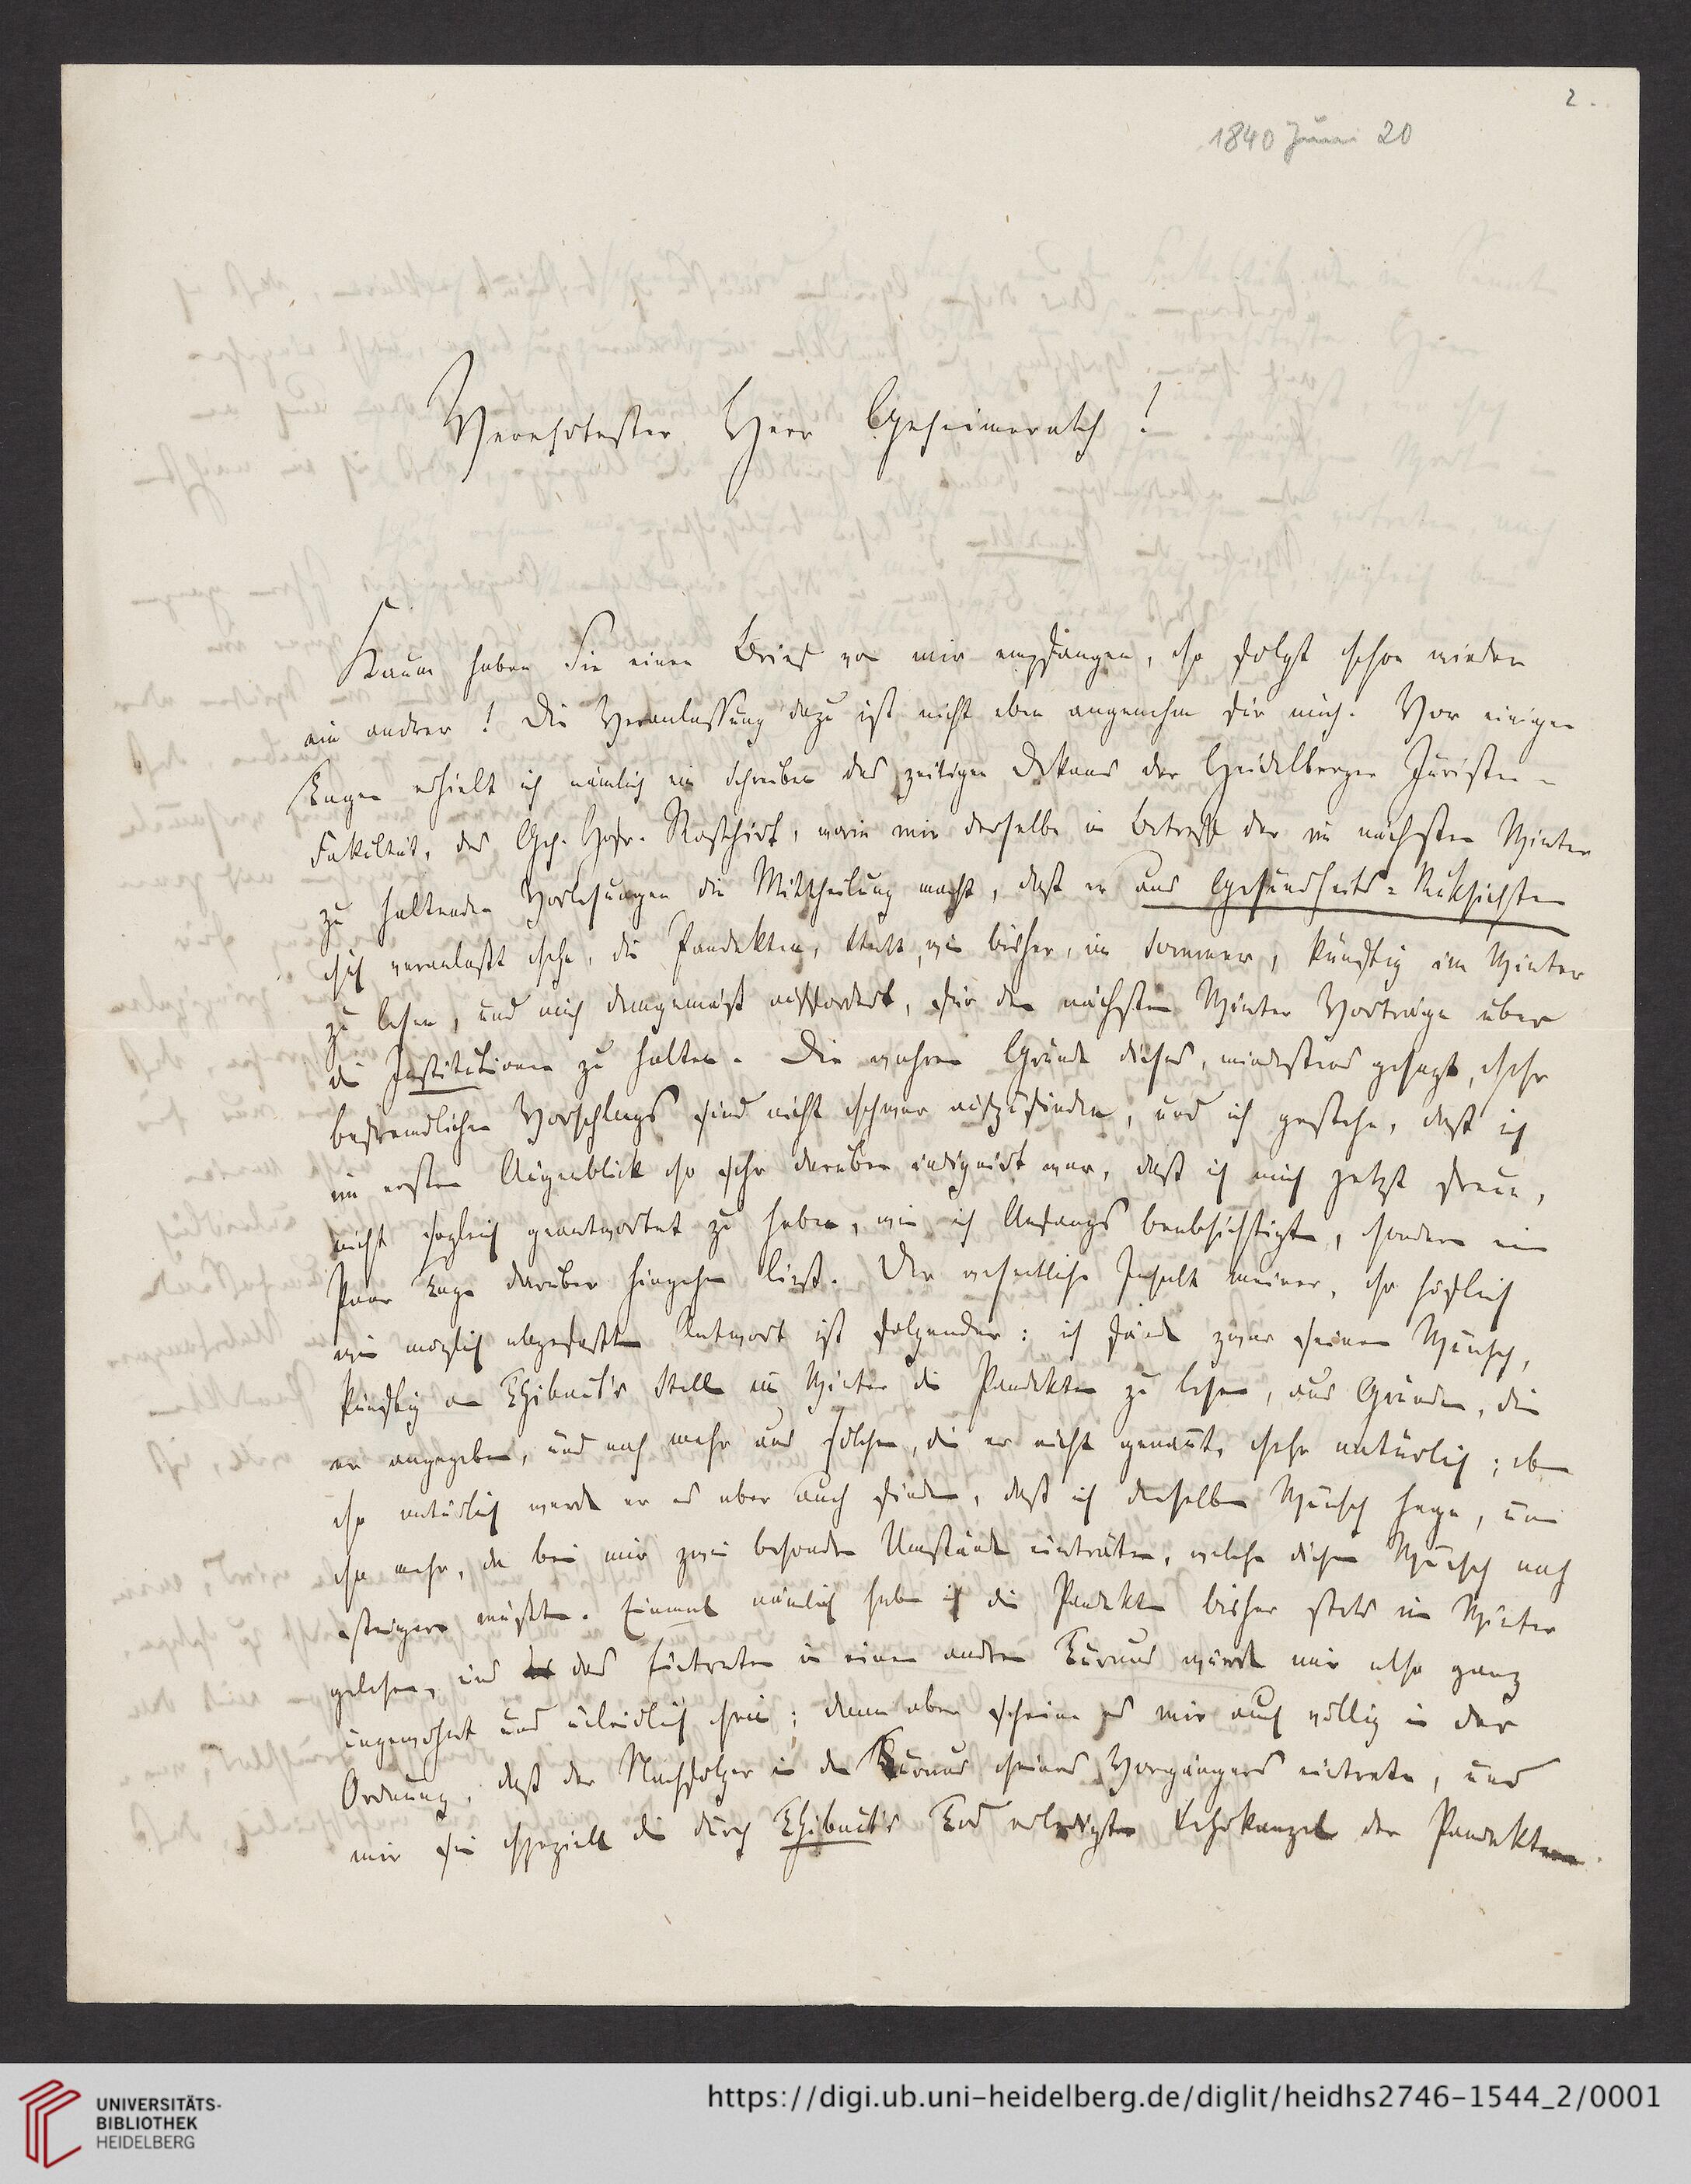 2.
1840 Juni 20
Verehrtester Herr Geheimerath!
Kaum haben Sie einen Brief von mir empfangen, so folgt schon wieder
ein andrer! Die Veranlassung dazu ist nicht eben angenehm für mich. Vor einigen
Tagen erhielt ich nämlich ein Schreiben des zeitigen Dekans der Heidelberger Juristen-
Fakultät, des Geh. Hofr. Roßhirt, worin mir derselbe in Betreff der im nächsten Winter
zu haltenden Vorlesungen die Mittheilung macht, daß er aus Gesundheits-Rüksichten
sich veranlaßt sehe, die Pandekten, statt, wie bisher, im Sommer, künftig im Winter
zu lesen, und mich demgemäß auffordert, für den nächsten Winter Vorträge über
die Institutionen zu halten. Die wahren Gründe dieses, mindestens gesagt, sehr
befremdlichen Vorschlags sind nicht schwer aufzufinden, und ich gestehe, daß ich
im ersten Augenblick so sehr darüber indignirt war, daß ich mich jetzt freue,
nicht sogleich geantwortet zu haben, wie ich Anfangs beabsichtigte, sondern ein
Paar Tage darüber hingehen ließ. Der wesentliche Inhalt meiner, so höflich
wie möglich abgefaßten Antwort ist folgender: ich fände zwar seinen Wunsch,
künftig an Thibaut's Stelle im Winter die Pandekten zu lesen, aus Gründen, die
er angegeben, und noch mehr aus solchen, die er nicht genannt, sehr natürlich; eben
so natürlich werde er es aber auch finden, daß ich denselben Wunsch hege, um
so mehr, da bei mir zwei besondre Umstände einträten, welche diesen Wunsch noch
steigern müßten. Einmal nämlich habe ich die Pandekten bisher stets im Winter
gelesen, und das Eintreten in einen andren Turnus würde mir also ganz
ungewohnt und unleidlich sein; dann aber scheine es mir auch völlig in der
Ordnung, daß der Nachfolger in den Turnus seines Vorgängers eintrete, und
mir sei speziell die durch Thibaut's Tod erledigte Lehrkanzel der Pandekten
UNIVERSITÄTS-
BIBLIOTHEK
HEIDELBERG
https://digi.ub.uni-heidelberg.de/diglit/heidhs2746-1544_2/0001